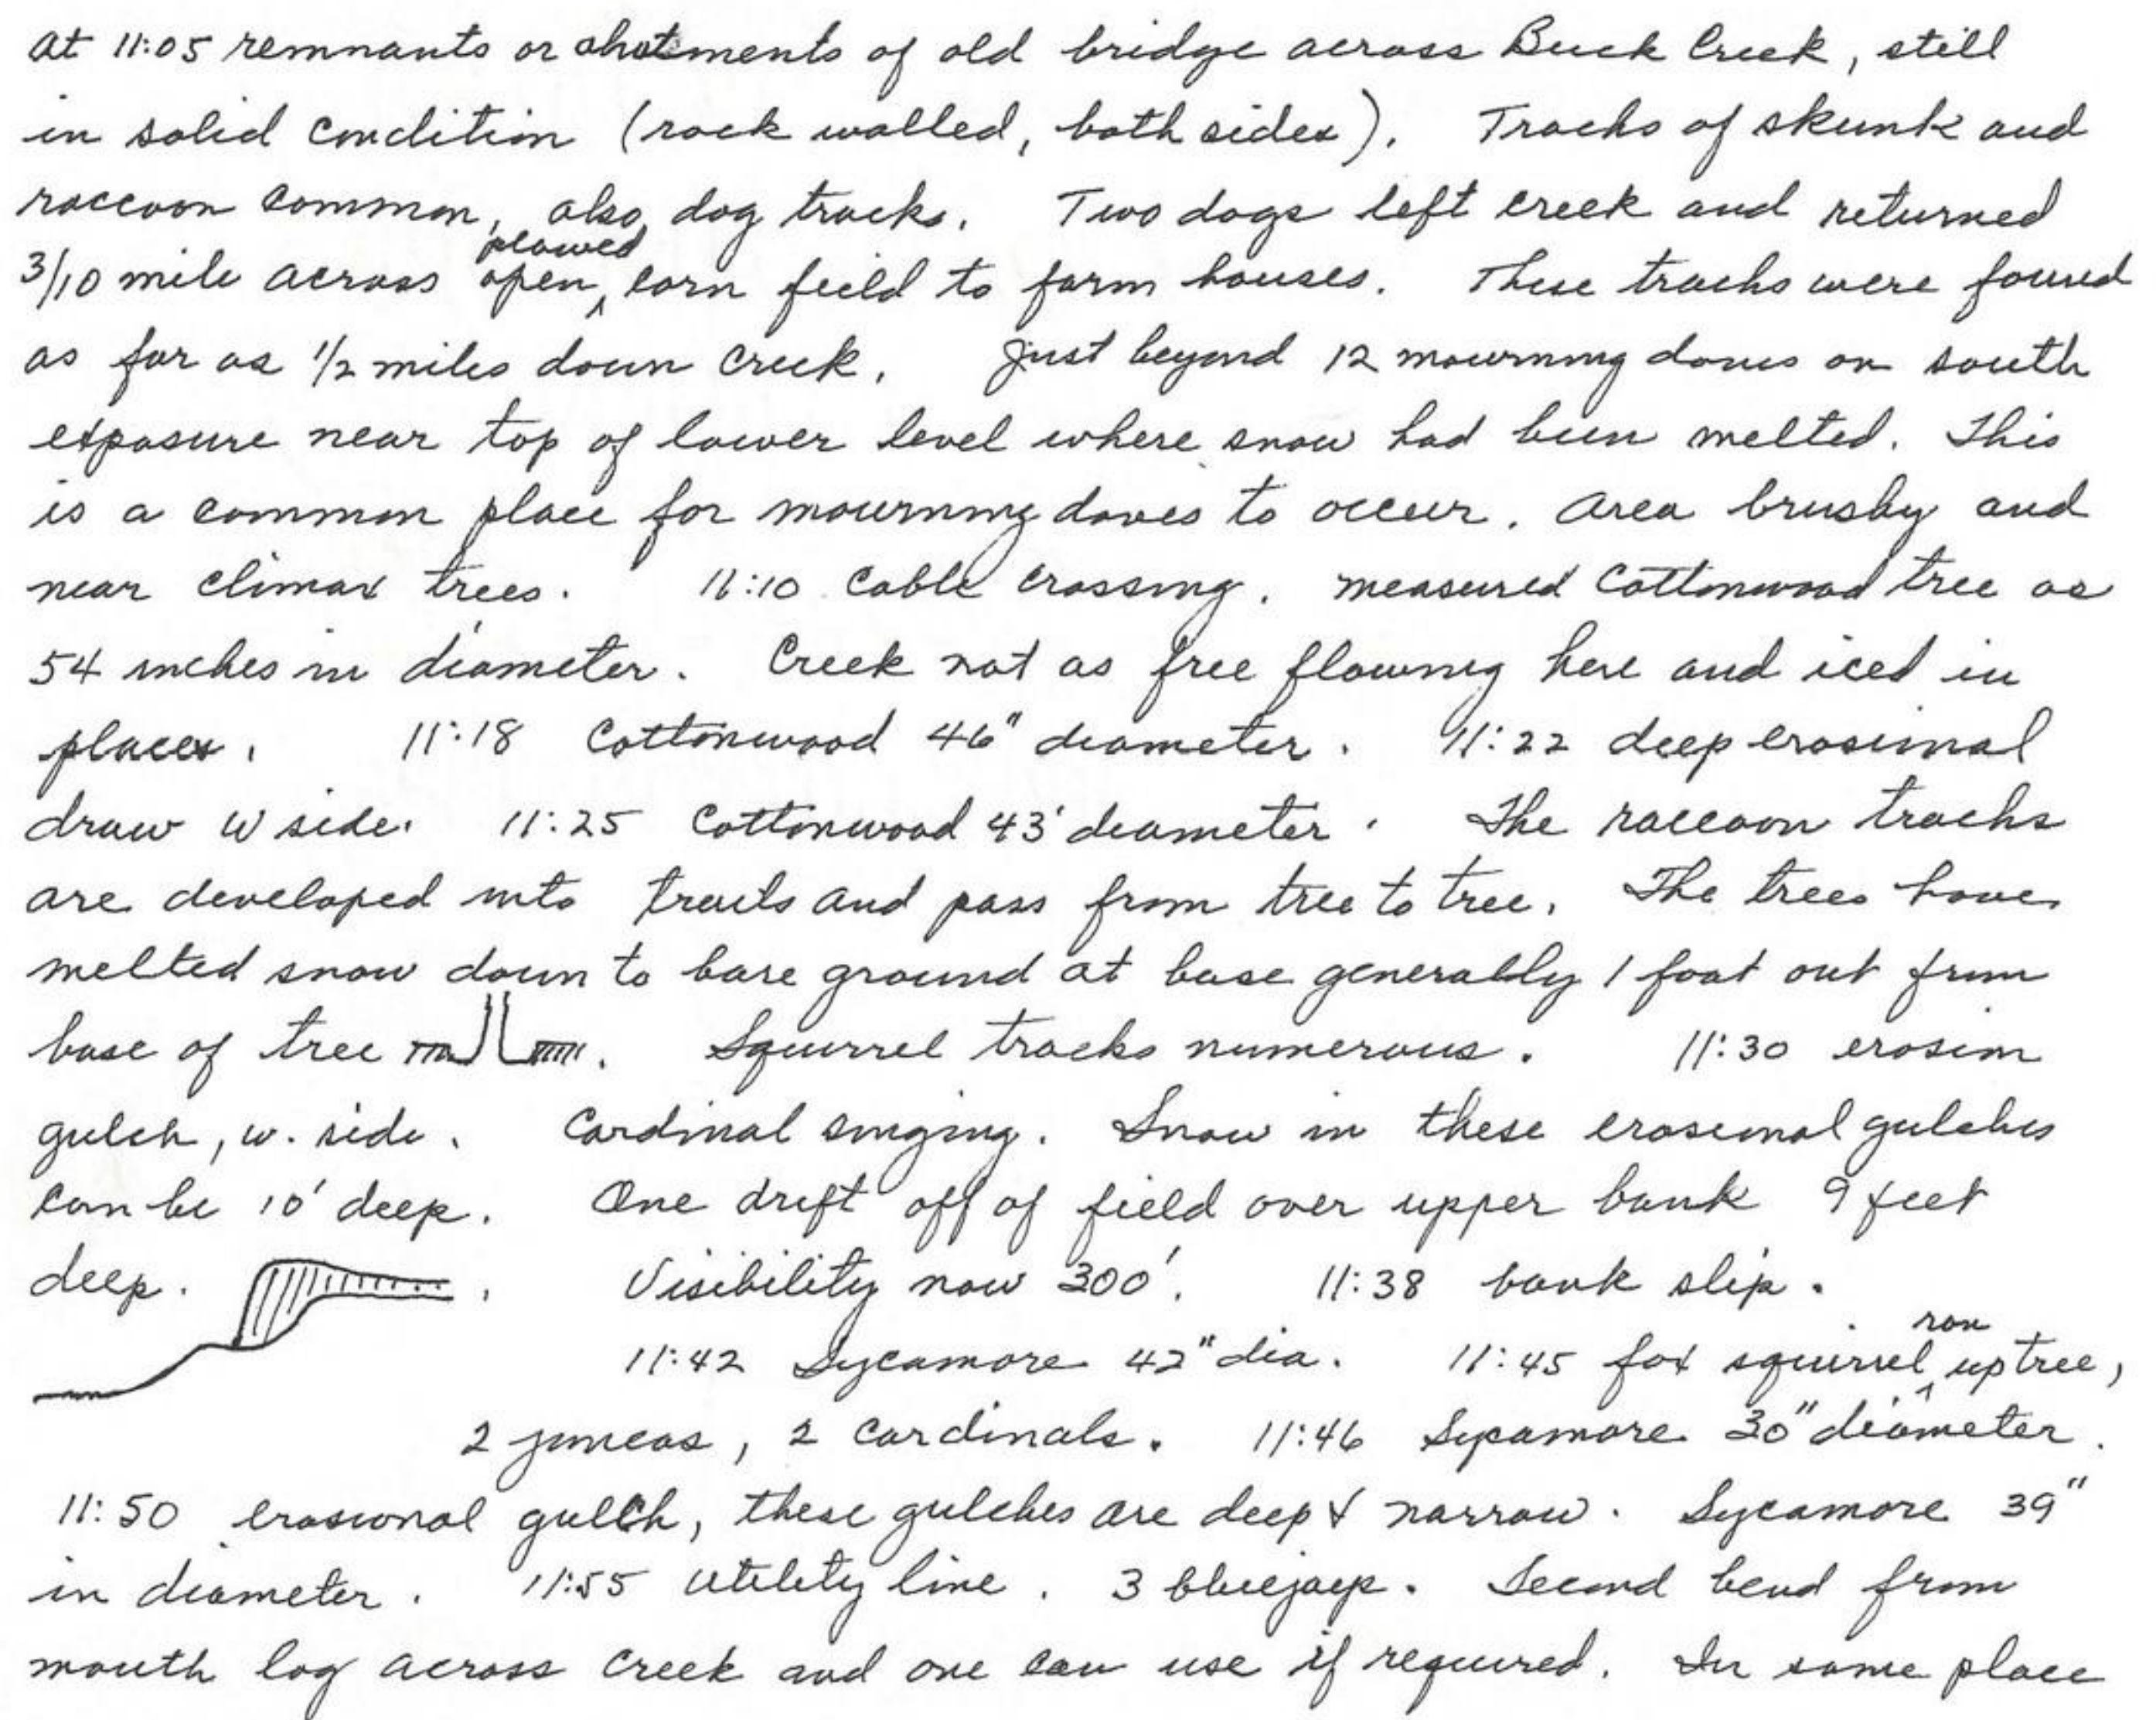 at 11:05 remnants or abutments of old bridge across Buck Creek, still
in solid condition (rock walled, both sides). Tracks of skunk and
raccoon common, also dog tracks. Two dogs left creek and returned
plowed
3/10 mile across open, corn field to farm houses. These tracks were found
as far as 1/2 miles down creek. Just beyond 12 mourning doves on south
exposure near top of lower level where snow had been melted. This
is a common place for mourning doves to occur. Area brushy and
near climax trees. 11:10 Cable crossing. measured Cottonwood tree as
54 inches in diameter. Creek not as free flowing here and iced in
places. 11:18 Cottonwood 46" diameter. 11:22 deep erosional
draw W side. 11:25 Cottonwood 43' diameter. The raccoon tracks
are developed into trails and pass from tree to tree. The trees have
melted snow down to bare ground at base generally 1 foot out from
base of tree . Squirrel tracks numerous. 11:30 erosion
gulch, w. side. Cardinal singing. Snow in these erosional gulches
can be 10' deep. One drift off of field over upper bank 9 feet
deep. Visibility now 300'. 11:38 bank slip.
ran
11:42 Sycamore 42" dia. 11:45 fox squirrel ^ up tree,
2 juncos, 2 cardinals. 11:46 Sycamore 30" diameter.
11:50 erosional gulch, these gulches are deep & narrow. Sycamore 39"
in diameter. 11:55 utility line. 3 bluejays. Second bend from
mouth log across creek and one can use if required. In same place